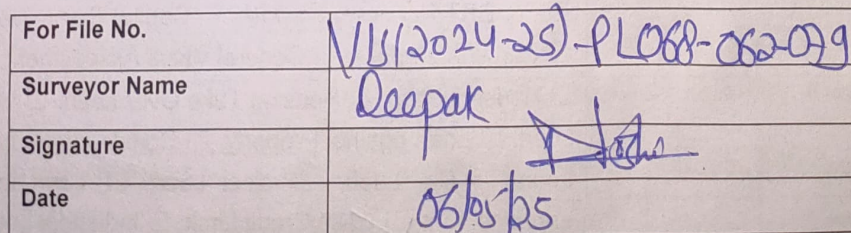 For File No. VIS(2024-25)-PL068-062-079
Surveyor Name Deepak
Signature
Date 06/05/25